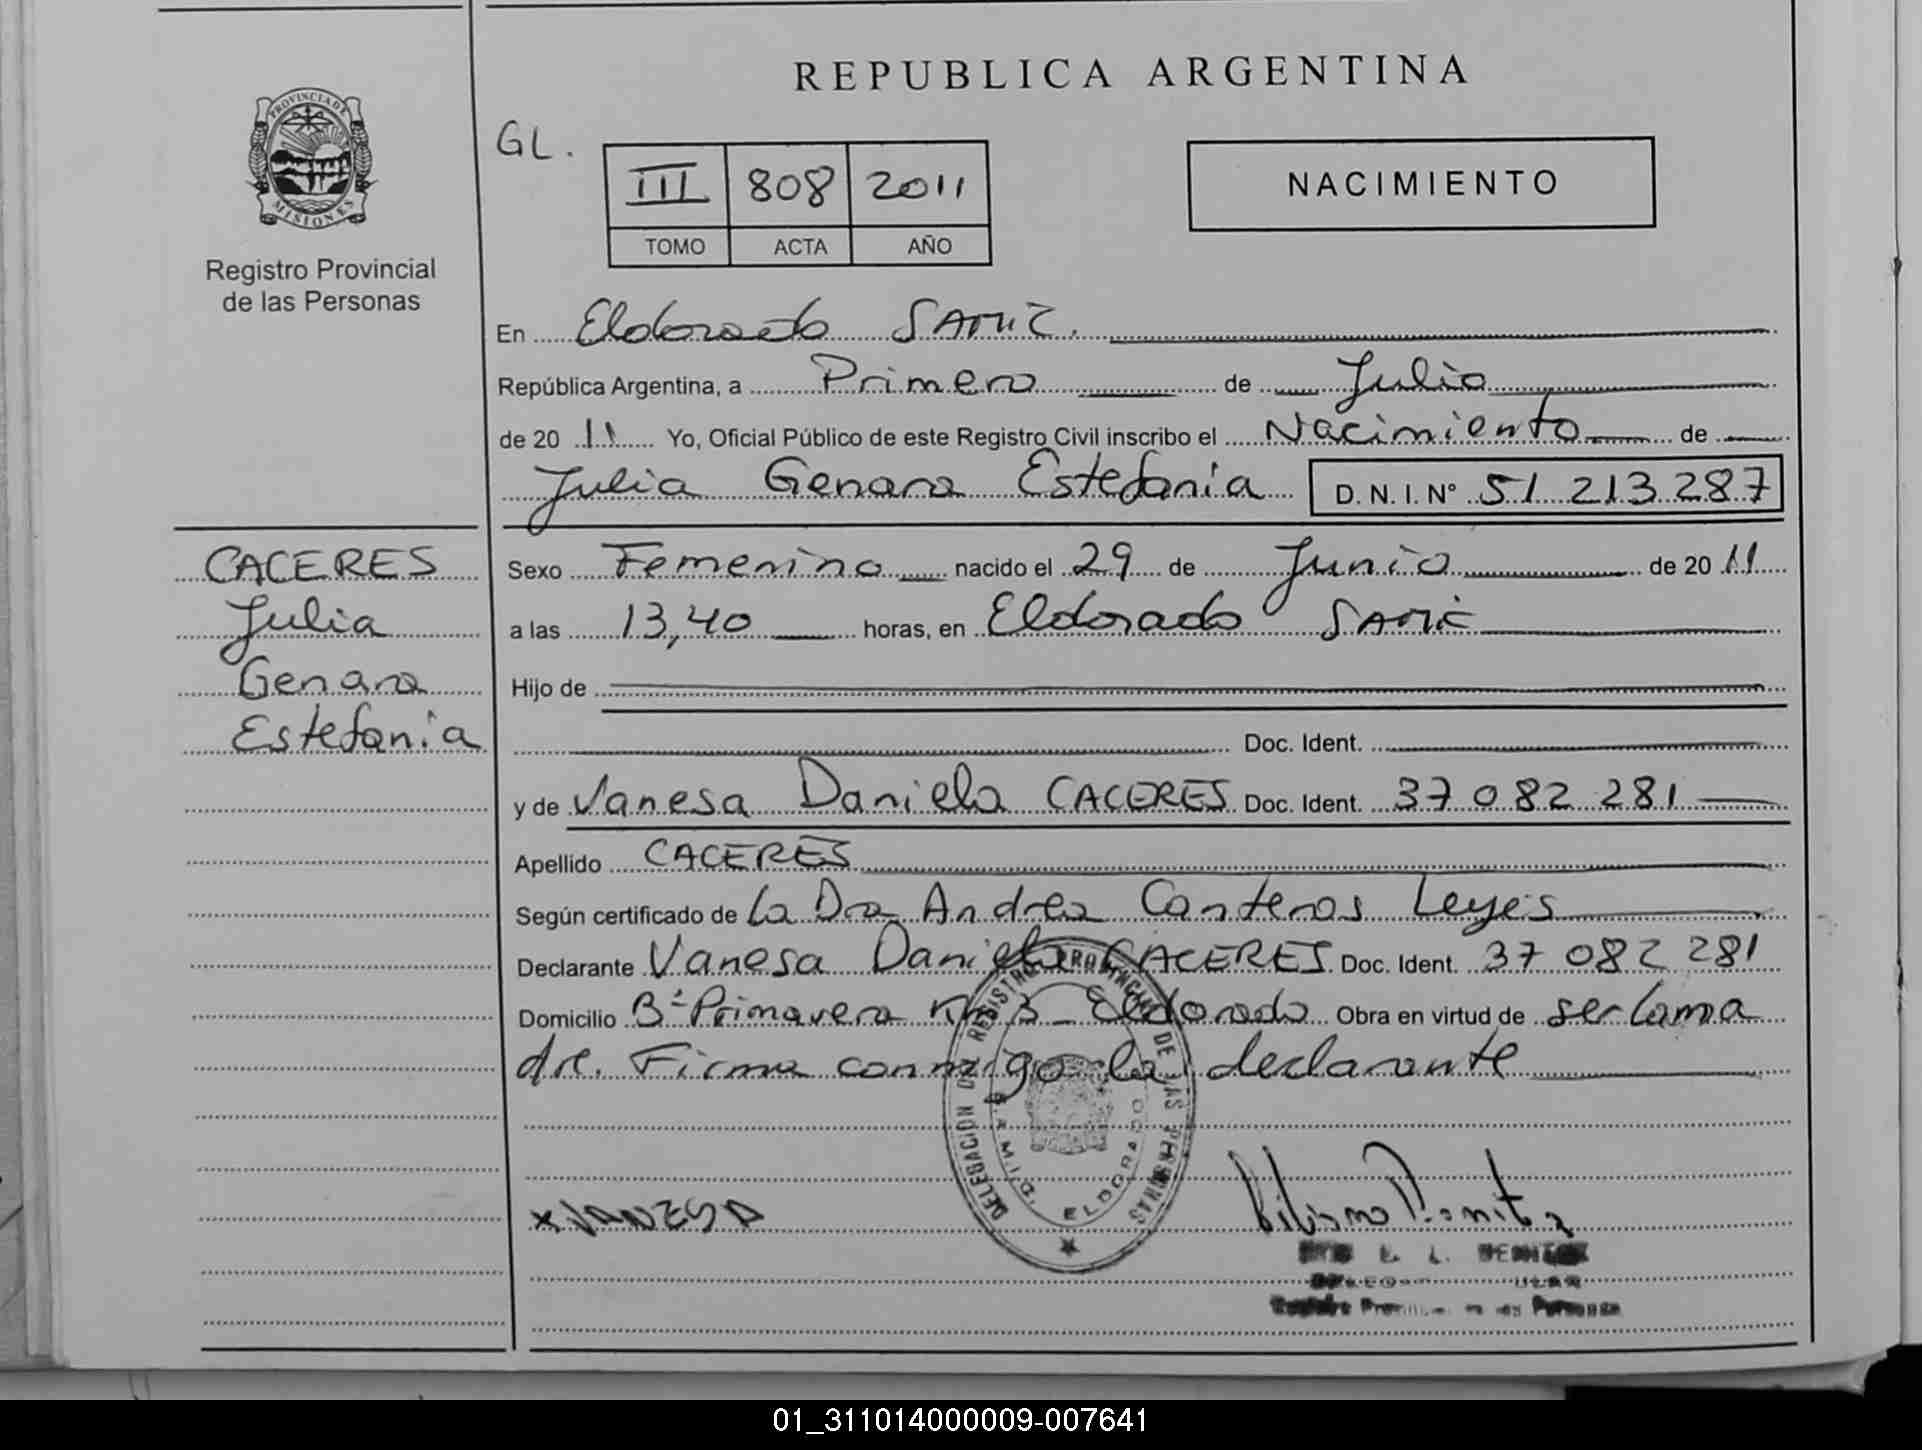 REPUBLICA ARGENTINA
PROVINCIA DE MISIONES
Registro Provincial
de las Personas
GL.
III 808 2011
TOMO ACTA AÑO
NACIMIENTO
En Eldorado SAMIC.
República Argentina, a Primero de Julio
de 20 11 Yo, Oficial Público de este Registro Civil inscribo el Nacimiento de
Julia Genara Estefania D. N. I. Nº 51 213 287
CACERES
Julia
Genara
Estefania
Sexo Femenino nacido el 29 de Junio de 20 11
a las 13,40 horas, en Eldorado SAMIC
Hijo de
Doc. Ident.
y de Vanesa Daniela CACERES Doc. Ident. 37 082 281
Apellido CACERES
Según certificado de la Dra Andrea Canteros Leyes
Declarante Vanesa Daniela CACERES Doc. Ident. 37 082 281
Domicilio Bº Primavera Km 3 - Eldorado Obra en virtud de ser la ma
dre. Firma conmigo la declarante
DELEGACIÓN DEL REGISTRO PROVINCIAL DE LAS PERSONAS
ELDORADO
x VANESA
L. BENITEZ
Registro Provincial de las Personas
01_311014000009-007641